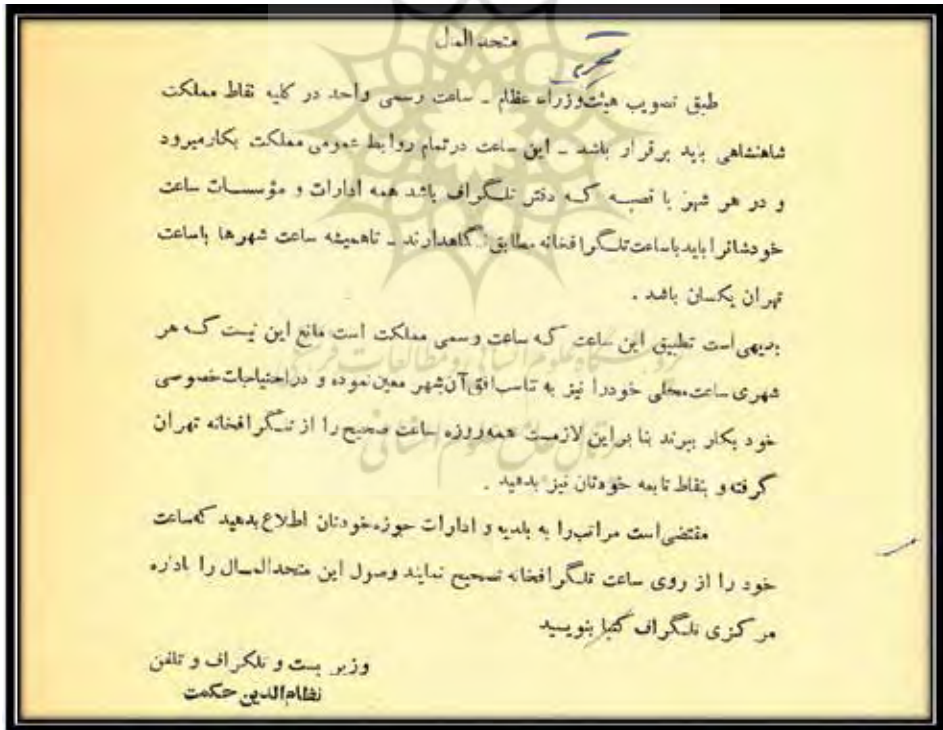 متحد المال
طبق تصویب هیئت وزراء عظام ـ ساعت رسمی واحد در کلیه نقاط مملکت
شاهنشاهی باید برقرار باشد ـ این ساعت در تمام روابط عمومی مملکت بکار میرود
و در هر شهر یا قصبه که دفتر تلگراف باشد همه ادارات و مؤسسات ساعت
خودشانرا باید با ساعت تلگرافخانه مطابق نگاهدارند ـ تا همیشه ساعت شهرها با ساعت
تهران یکسان باشد .
بدیهی است تطبیق این ساعت که ساعت رسمی مملکت است مانع این نیست که هر
شهری ساعت محلی خود را نیز به تناسب افق آن شهر معین نموده و در احتیاجات خصوصی
خود بکار ببرند بنا بر این لازمست همه روزه ساعت صحیح را از تلگرافخانه تهران
گرفته و بنقاط تابعه خودتان نیز بدهید .
مقتضی است مراتب را به بلدیه و ادارات حوزه خودتان اطلاع بدهید که ساعت
خود را از روی ساعت تلگرافخانه تصحیح نمایند وصول این متحدالمال را باداره
مرکزی تلگراف کتبا بنویسید
وزیر پست و تلگراف و تلفن
نظام‌الدین حکمت
پژوهشگاه علوم انسانی و مطالعات فرهنگی
پرتال جامع علوم انسانی